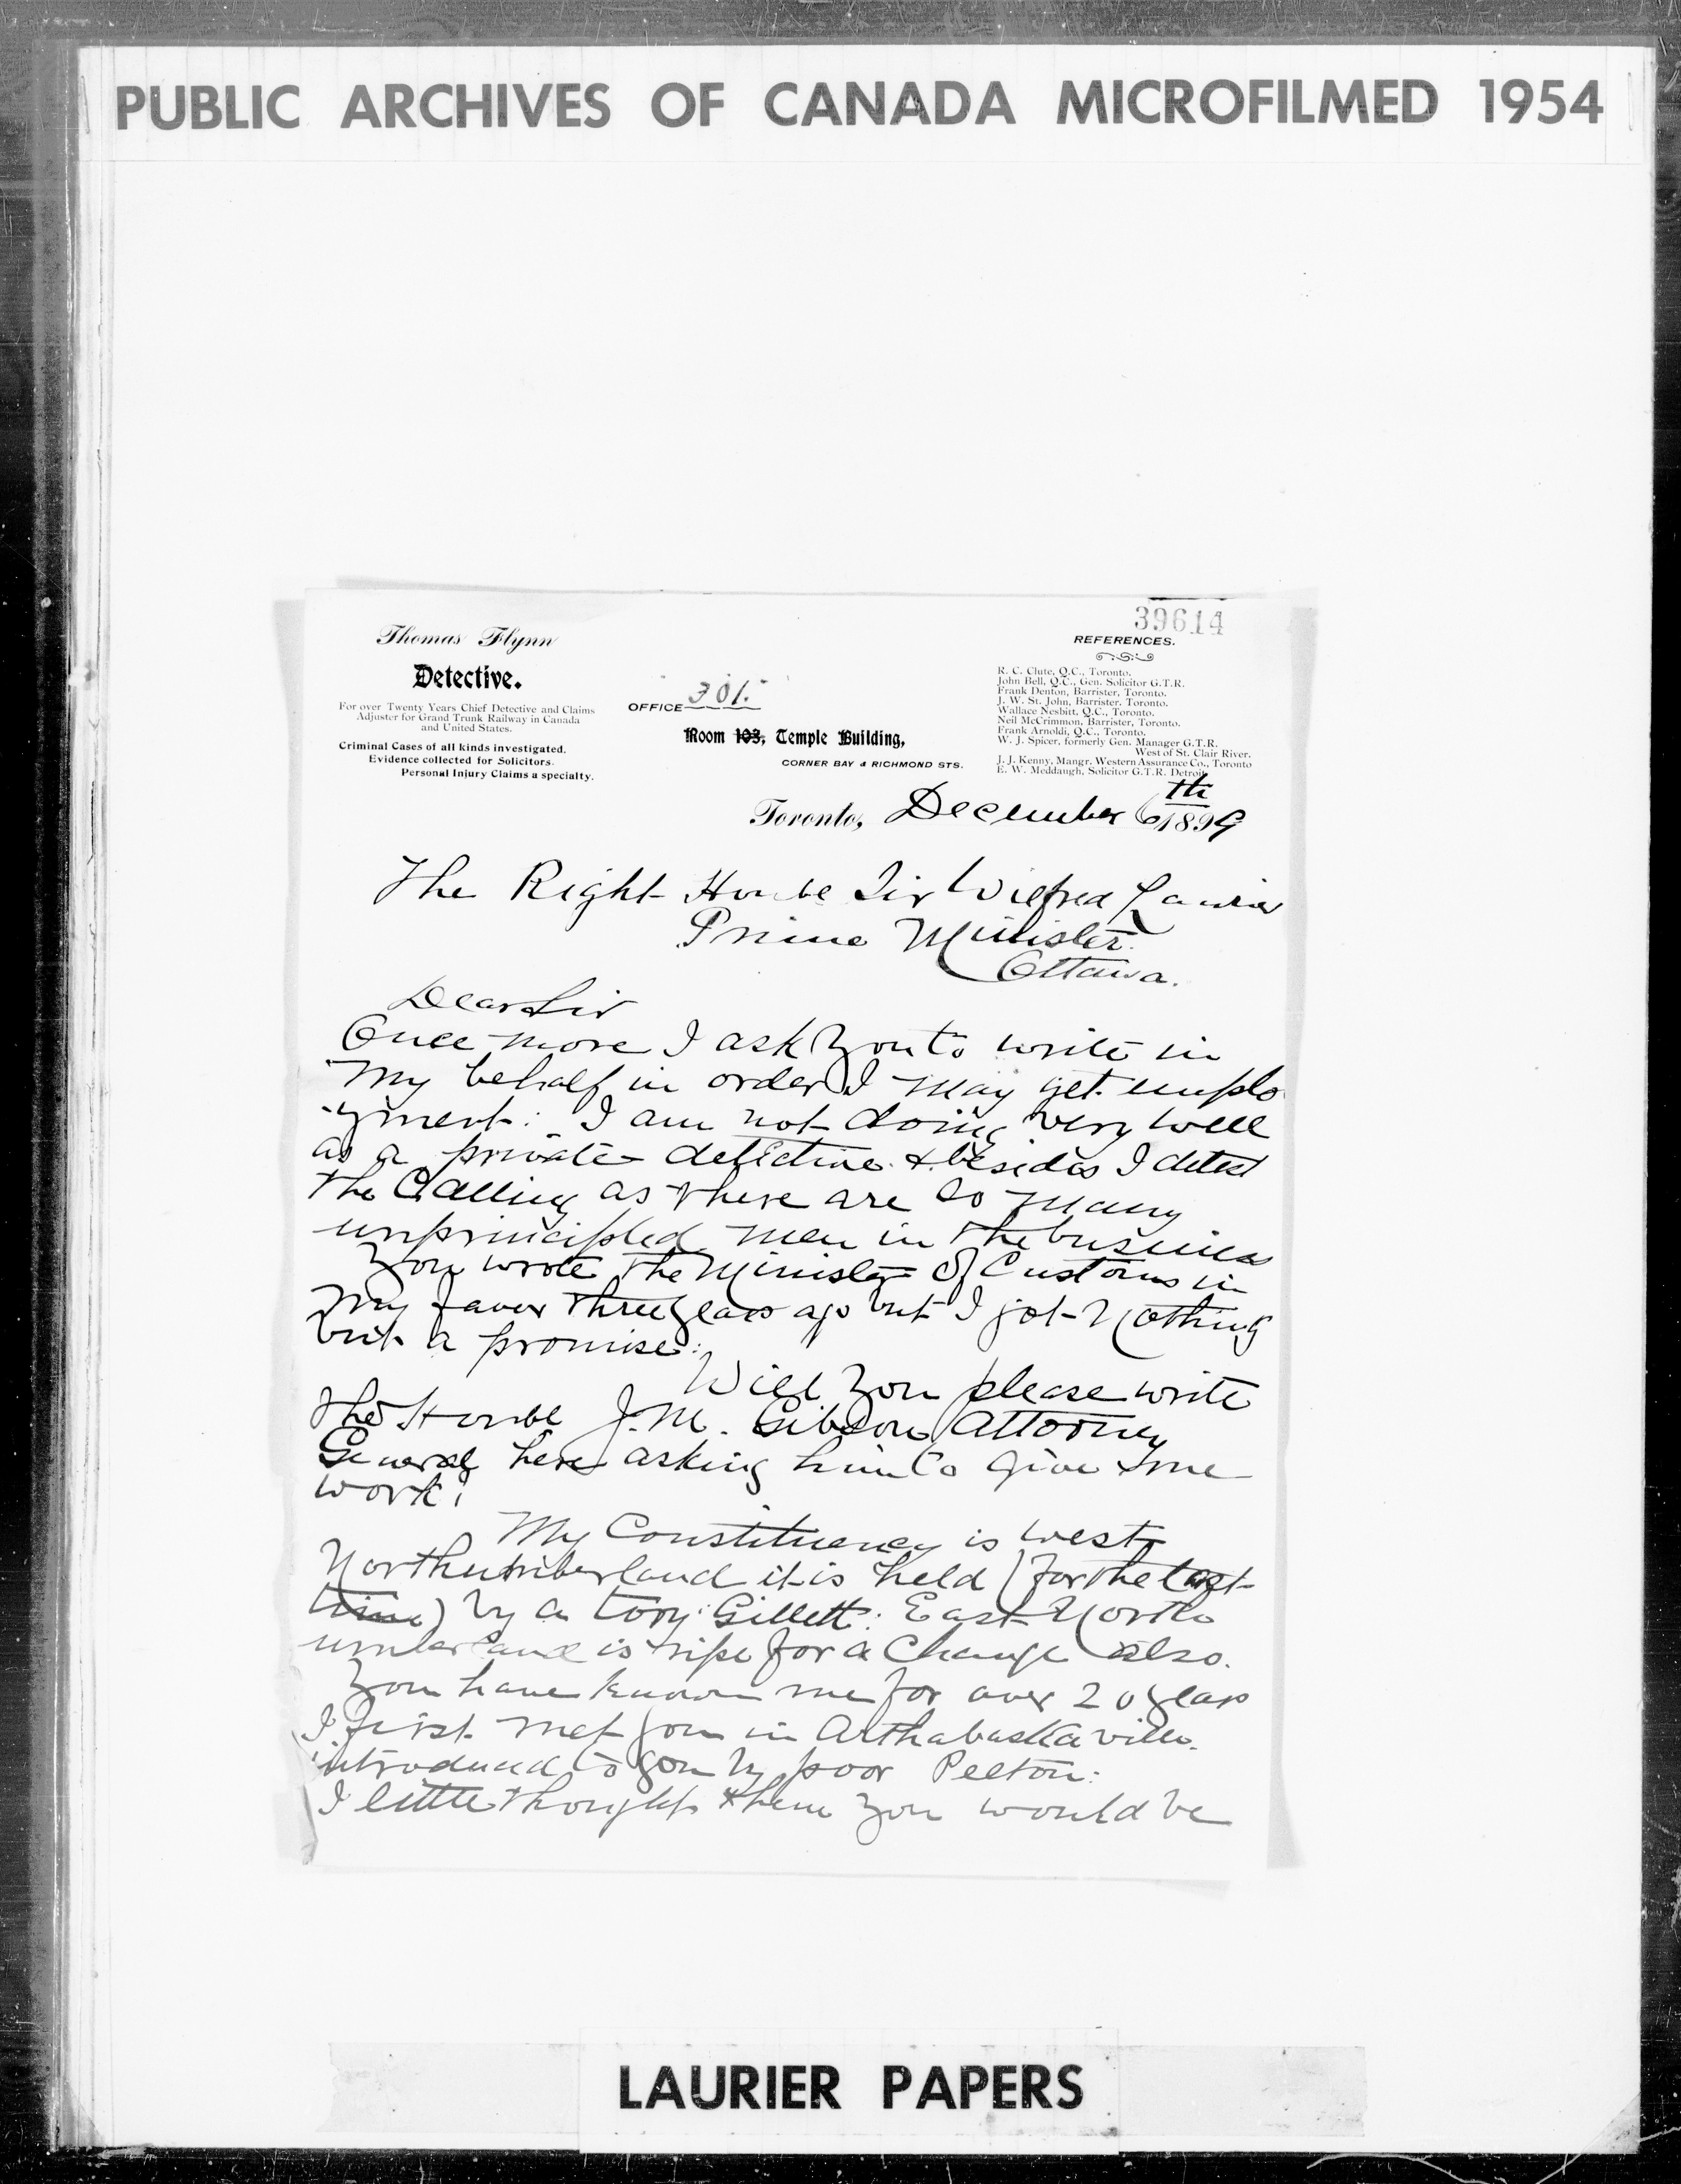 PUBLIC ARCHIVES OF CANADA MICROFILMED 1954
39614
Thomas Flynn
Detective.
For over Twenty Years Chief Detective and Claims
Adjuster for Grand Trunk Railway in Canada
and United States.
Criminal Cases of all kinds investigated.
Evidence collected for Solicitors.
Personal Injury Claims a specialty.
OFFICE 301.
Room 103, Temple Building,
CORNER BAY & RICHMOND STS.
REFERENCES.
R. C. Clute, Q.C., Toronto.
John Bell, Q.C., Gen. Solicitor G.T.R.
Frank Denton, Barrister, Toronto.
J. W. St. John, Barrister, Toronto.
Wallace Nesbitt, Q.C., Toronto.
Neil McCrimmon, Barrister, Toronto.
Frank Arnoldi, Q.C., Toronto.
W. J. Spicer, formerly Gen. Manager G.T.R.
West of St. Clair River.
J. J. Kenny, Mangr. Western Assurance Co., Toronto
E. W. Meddaugh, Solicitor G.T.R. Detroit
Toronto, December 6th 1899
The Right Honble Sir Wilfred Laurier
Prime Minister.
Ottawa.
Dear Sir
Once more I ask you to write in
my behalf in order I may get emplo
-yment: I am not doing very well
as a private detective. & besides I detest
the Calling as there are so many
unprincipled men in the business
You wrote the Minister of Customs in
my favor three years ago but I got Nothing
but a promise:
Will you please write
the Honble J. M. Gibson Attorney
General here asking him to give me
work:
My Constituency is west
Northumberland it is held (for the last
time) by a tory: Gillett: East North
umberland is ripe for a Change also.
You have known me for over 20 years
I first met you in Arthabaskaville.
introduced to you by poor Pelton:
I little thought then you would be
LAURIER PAPERS